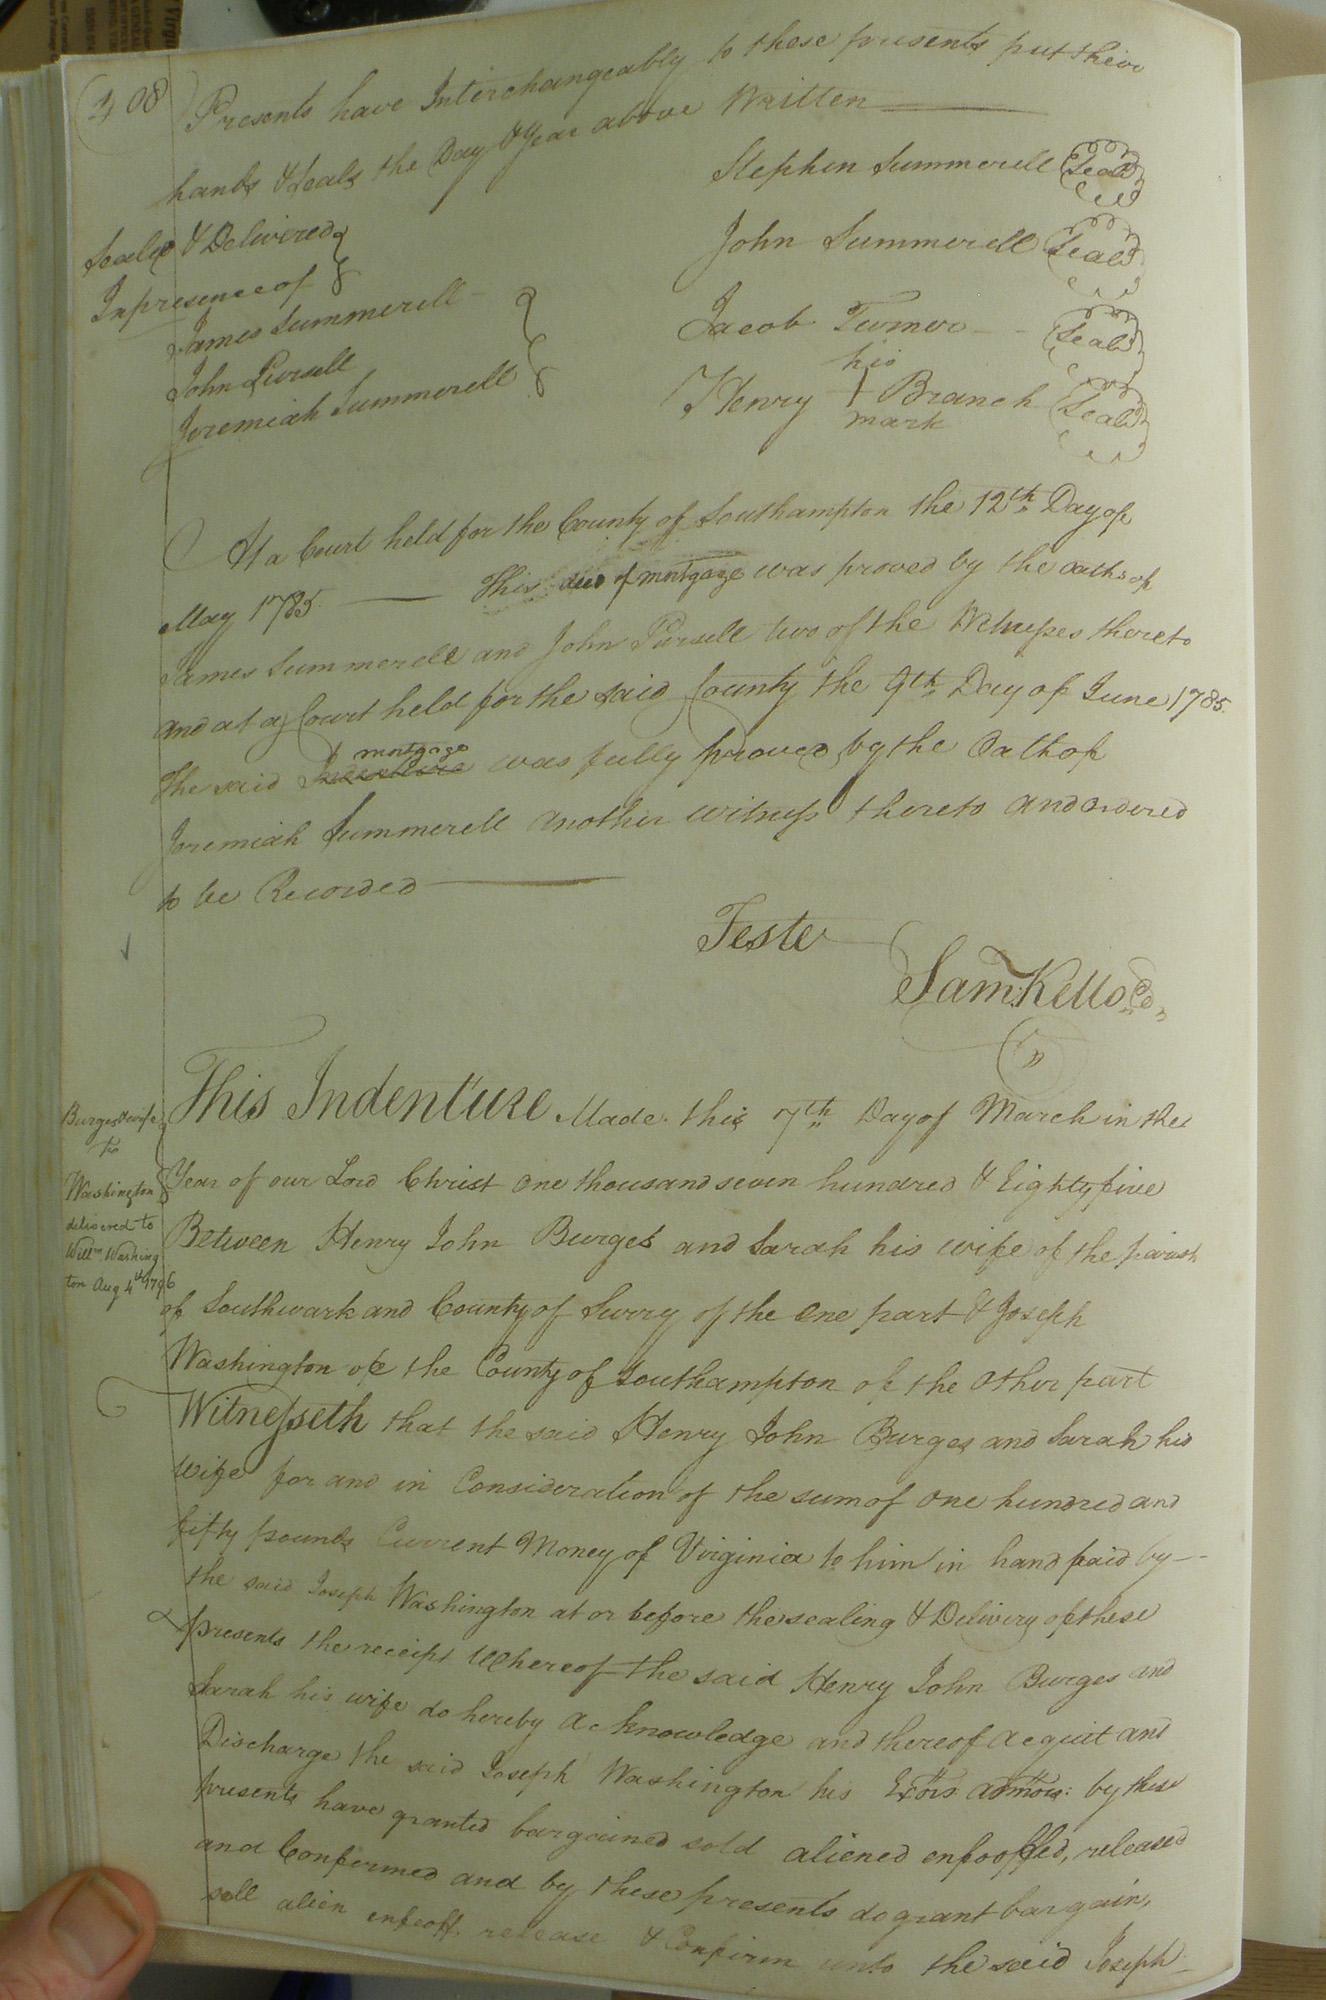 408
Presents have Interchangeably to these presents put their
hands & Seals the Day & Year above Written
Stephen Summerell Seal
John Summerell Seal
Jacob Turner Seal
his
Henry + Branch Seal
mark
Sealed & Delivered
In presence of
James Summerell
John Pursell
Jeremiah Summerell
At a Court held for the County of Southampton the 12th Day of
May 1785. This deed of mortgage was proved by the oaths of
James Summerell and John Pursell two of the Witnesses thereto
and at a Court held for the said County the 9th Day of June 1785.
The said Indenture mortgage was fully proved by the Oath of
Jeremiah Summerell another witness thereto and ordered
to be Recorded
Teste
Sam: Kello Co
Burges & wife
to
Washington
delivered to
Willm Washing
ton Aug 4th 1796
This Indenture Made this 7th Day of March in the
Year of our Lord Christ One thousand seven hundred & Eighty five
Between Henry John Burges and Sarah his wife of the parish
of Southwark and County of Surry of the One part & Joseph
Washington of the County of Southampton of the Other part
Witnesseth that the said Henry John Burges and Sarah his
Wife for and in Consideration of the sum of One hundred and
fifty pounds Current Money of Virginia to him in hand paid by
the said Joseph Washington at or before the sealing & Delivery of these
presents the receipt Whereof the said Henry John Burges and
Sarah his wife do hereby Acknowledge and thereof Acquit and
Discharge the said Joseph Washington his Exors admors: by these
presents have granted bargained sold aliened enfeoffed, released
and Confirmed and by these presents do grant bargain,
sell alien enfeoff release & Confirm unto the said Joseph